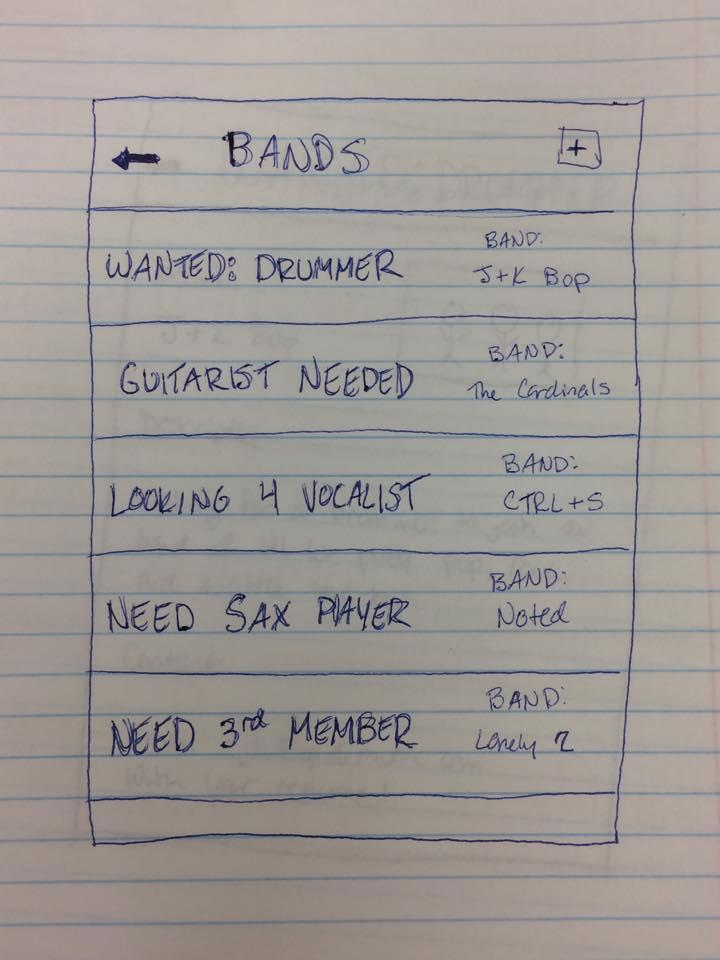 BANDS +
WANTED: DRUMMER
BAND:
J+K Bop
GUITARIST NEEDED
BAND:
The Cardinals
LOOKING 4 VOCALIST
BAND:
CTRL+S
NEED SAX PLAYER
BAND:
Noted
NEED 3rd MEMBER
BAND:
Lonely 2